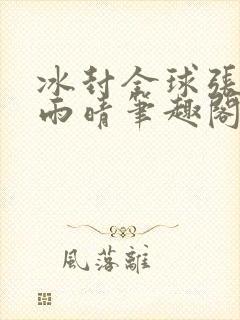 冰封全球張
雨晴筆趣閣
風落離